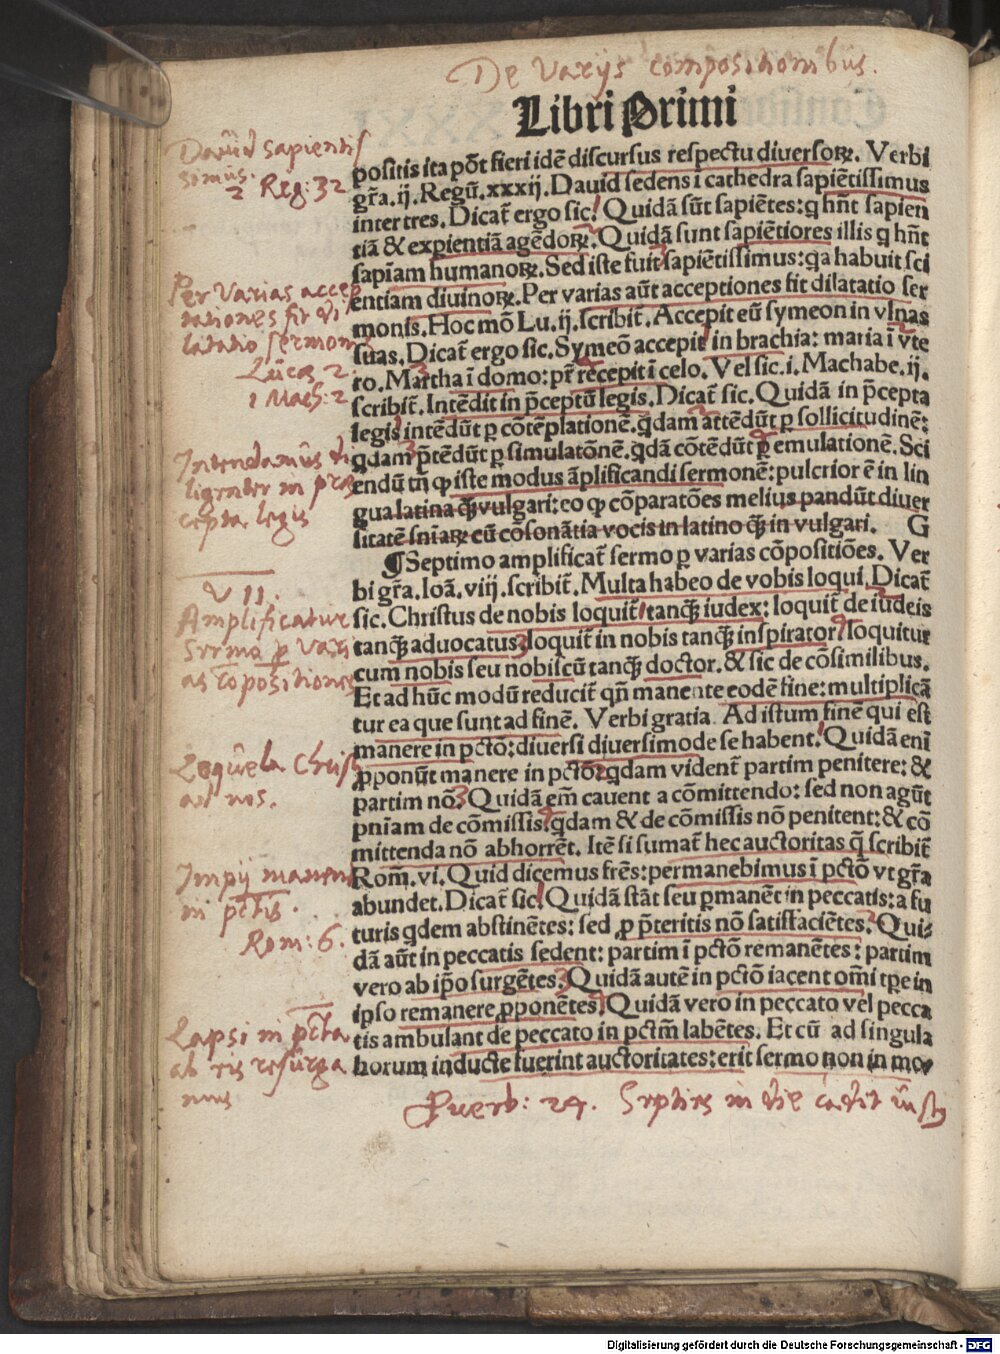 De varijs compositionibus.
Libri Primi
positis ita põt fieri idẽ discursus respectu diuersoꝝ. Verbi
gr̃a. ij. Regũ. xxxij. Dauid sedens ĩ cathedra sapiẽtissimus
inter tres. Dicat̃ ergo sic. Quidã sũt sapiẽtes: q hñt sapien
tiã & expientiã agẽdoꝝ. Quidã sunt sapiẽtiores illis q hñt
sapĩam humanoꝝ. Sed iste fuit sapiẽtissimus: qa habuit sci
entiam diuinoꝝ. Per varias aũt acceptiones fit dilatatio ser
monis. Hoc mõ Lu. ij. scribit̃. Accepit eũ symeon in vlnas
suas. Dicat̃ ergo sic. Symeõ accepit in brachia: maria ĩ vte
ro. Martha ĩ domo: pr̃ recepit ĩ celo. Vel sic. i. Machabe. ij.
scribit̃. Intẽdit in p̃ceptũ legis. Dicat̃ sic. Quidã in p̃cepta
legis intẽdũt ꝑ cõtẽplationẽ. q̃dam attẽdũt ꝑ sollicitudinẽ:
q̃dam p̃tẽdũt ꝑ simulatõnẽ. q̃dã cõtẽdũt ꝑ emulationẽ. Sci
endũ tñ ꝙ iste modus ãplificandi sermonẽ: pulcrior ẽ in lin
gua latina q̃ꝫ vulgari: eo ꝙ cõparatões melius pandũt diuer
sitatẽ sñiaꝝ cũ cõsonãtia vocis in latino q̃ꝫ in vulgari. G
¶ Septimo amplificat̃ sermo ꝑ varias cõpositiões. Ver
bi gr̃a. Ioã. viij. scribit̃. Multa habeo de vobis loqui. Dicat̃
sic. Christus de nobis loquit̃ tanq̃ꝫ iudex: loquit̃ de iudeis
tanq̃ꝫ aduocatus: loquit̃ in nobis tanq̃ꝫ inspirator: loquitur
cum nobis seu nobiscũ tanq̃ꝫ doctor. & sic de cõsimilibus.
Et ad hũc modũ reducit̃ qñ manente eodẽ fine: multiplicã
tur ea que sunt ad finẽ. Verbi gratia. Ad istum finẽ qui est
manere in pctõ: diuersi diuersimode se habent. Quidã eni
ꝓponũt manere in pctõ: q̃dam vident̃ partim penitere: &
partim nõ. Quidã em̃ cauent a cõmittendo: sed non agũt
pniam de cõmissis. q̃dam & de cõmissis nõ penitent: & cõ
mittenda nõ abhorrẽt. Itẽ si sumat̃ hec auctoritas q̃ scribit̃
Rom̃. vi. Quid dicemus fr̃es: permanebimus ĩ pctõ vt gr̃a
abundet. Dicat̃ sic. Quidã stãt seu ꝑmanẽt in peccatis: a fu
turis q̃dem abstinẽtes: sed ꝓ p̃teritis nõ satisfaciẽtes. Qui-
dã aũt in peccatis sedent: partim ĩ pctõ remanẽtes: partim
vero ab ip̃o surgẽtes. Quidã autẽ in pctõ iacent om̃i tp̃e in
ipso remanere ꝓponẽtes. Quidã vero in peccato vel pecca
tis ambulant de peccato in pctm̃ labẽtes. Et cũ ad singula
horum inducte fuerint auctoritates: erit sermo non in mo-
Dauid sapientis
simus.
2 Reg: 32
Per varias accep
tationes fit di
latatio sermonis
Lucæ 2
1 Mach: 2
Intendamus di
ligenter in præ
cepta legis
VII.
Amplificatur
Sermo ꝑ vari
as cõpositiones
Loquela Christi
ad nos.
Impij manent
in pctis.
Rom: 6.
Lapsi in pcta
ab eis resurga
mus
Prouerb: 24. Septies in die cadit iustus
Digitalisierung gefördert durch die Deutsche Forschungsgemeinschaft - DFG